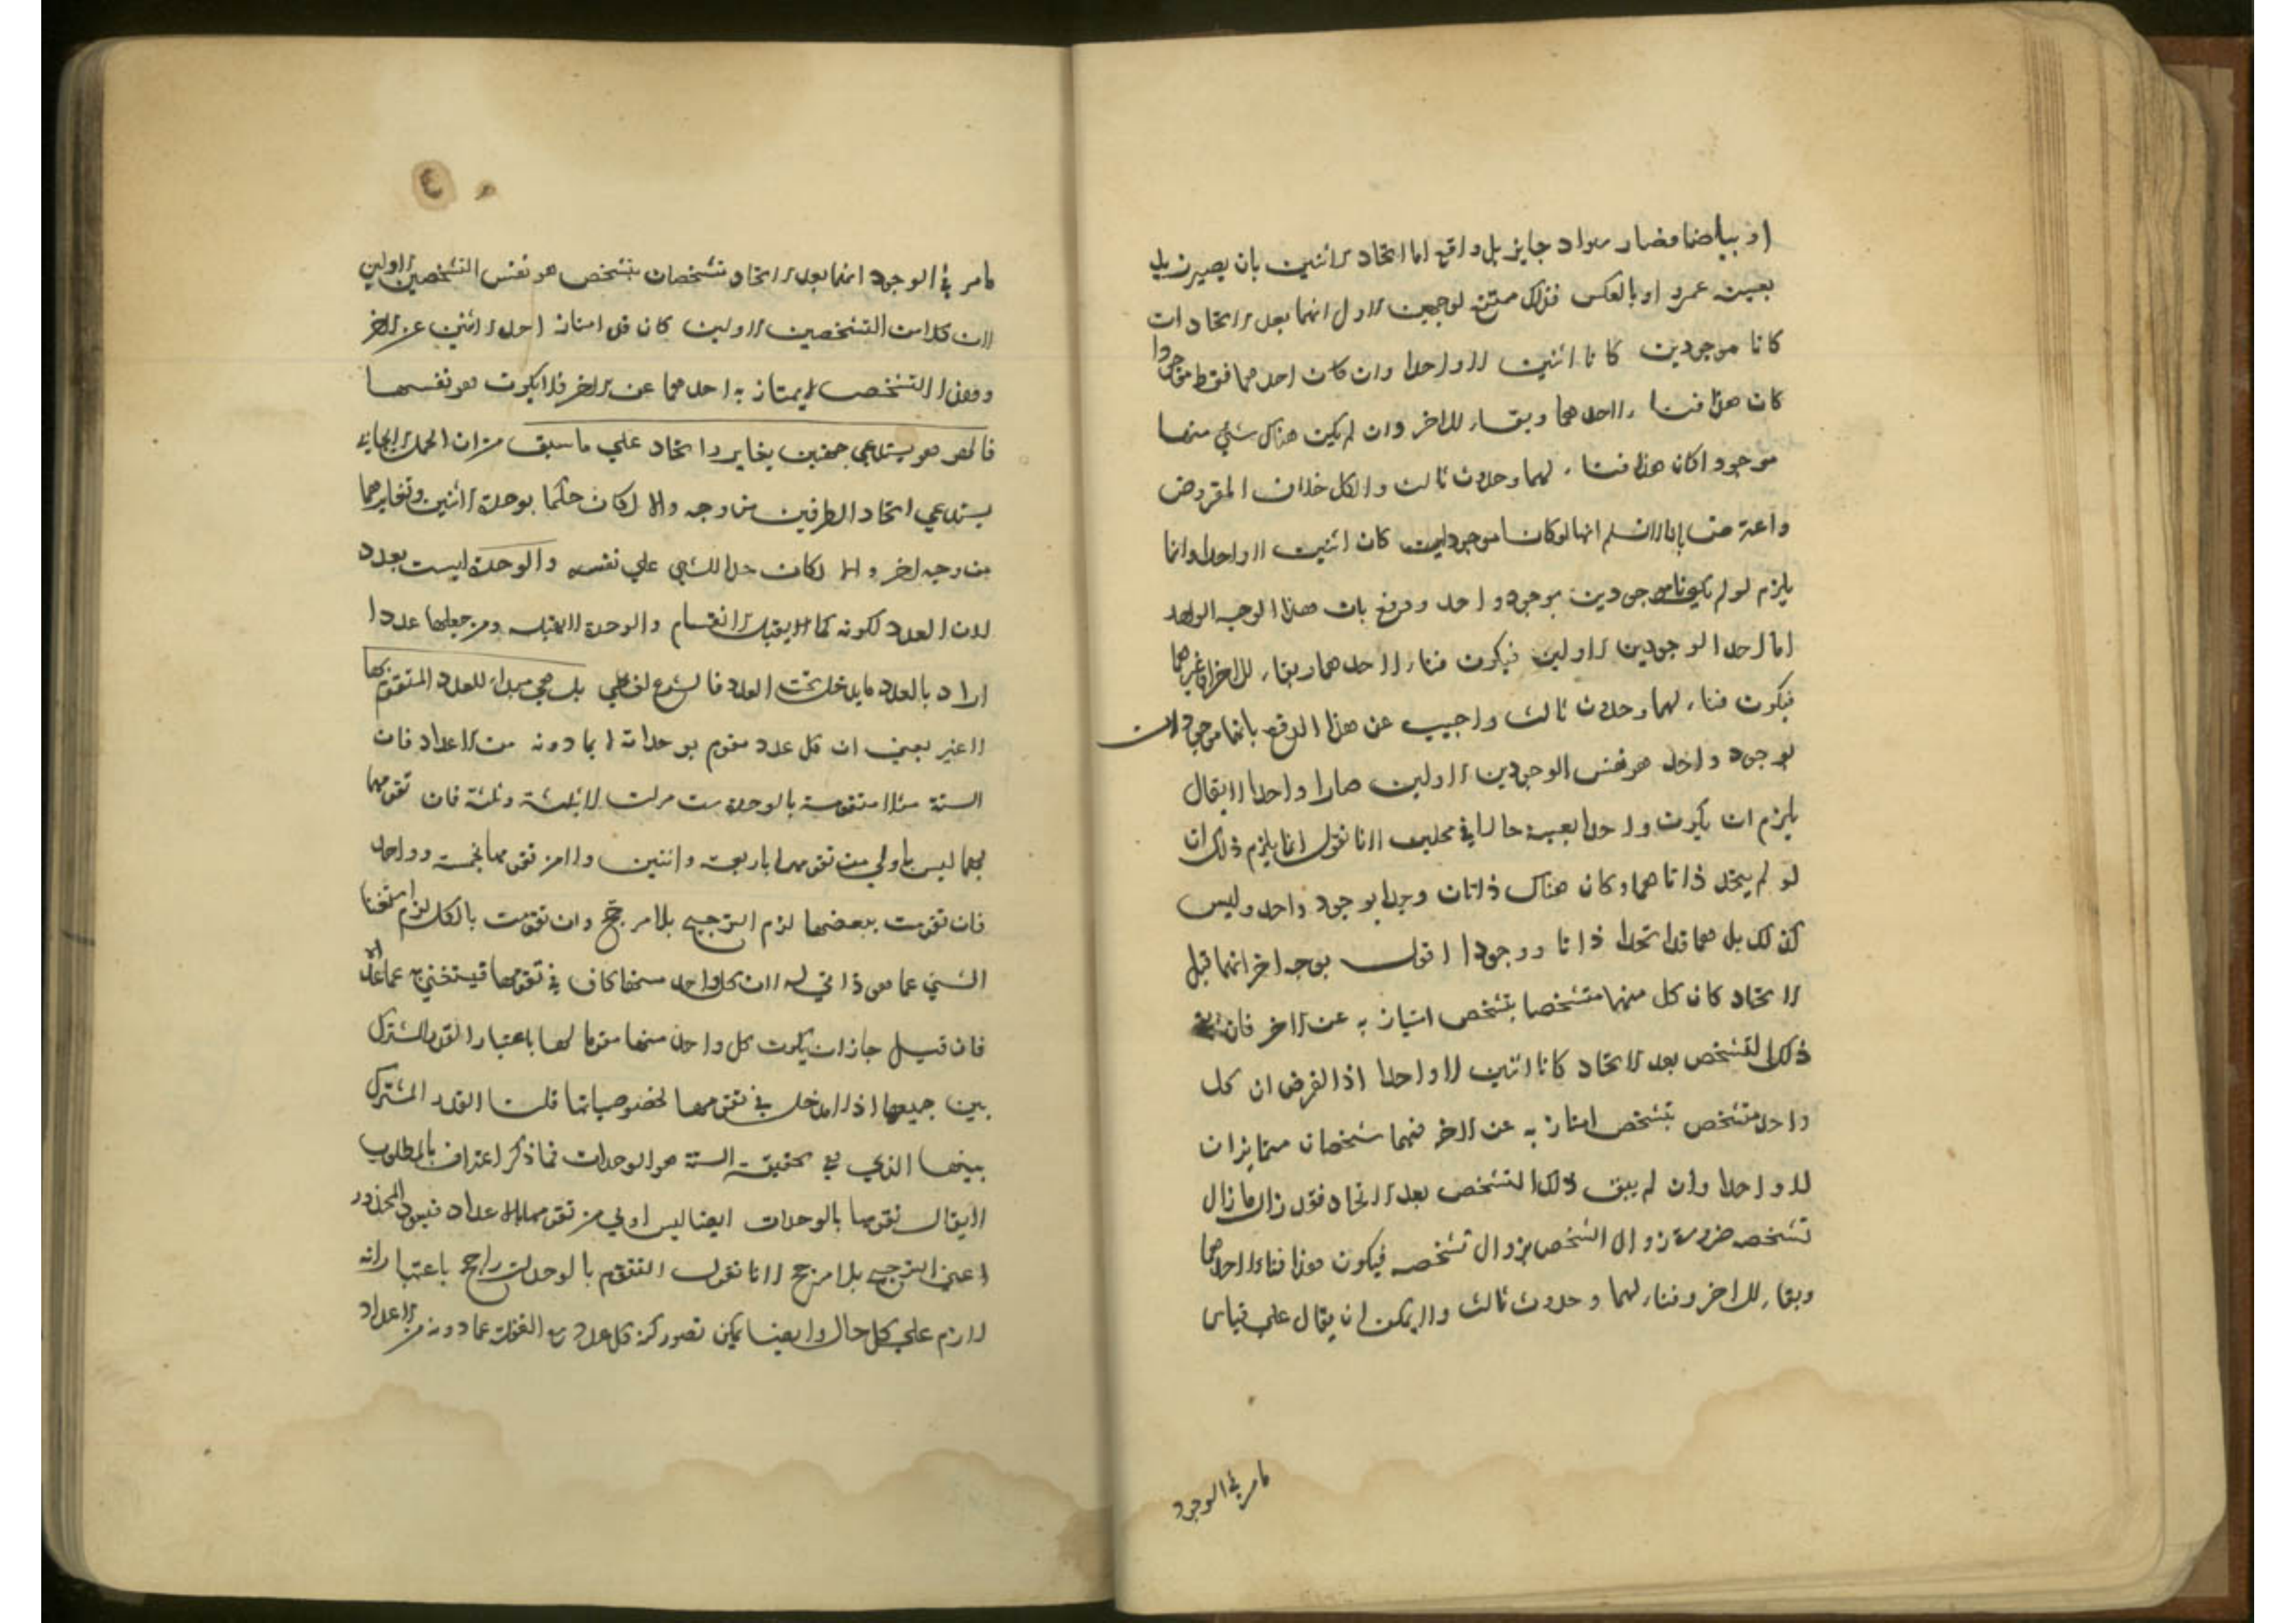 او بياضا فصار سواد جايز بل واقع اما اتحاد الاثنين بان يصير زيد
بعينه عمرو او بالعكس فذلك ممتنع لوجهين الاول انهما بعد الاتحاد ان
كانا موجودين كانا اثنين لا واحدا وان كان احدهما فقط موجودا
كان هذا فناء لاحدهما وبقاء للاخر وان لم يكن هناك شئ منهما
موجودا كان هذا فناء لهما وحدوث ثالث والكل خلاف المفروض
واعترض بانا لا نسلم انهما لو كانا موجودين كانا اثنين لا واحدا وانما
يلزم لو لم يكونا موجودين بوجود واحد ودفع بان هذا الوجه الواحد
اما احد الوجودين الاولين فيكون فناء لاحدهما وبقاء للاخر او غيرهما
فيكون فناء لهما وحدوث ثالث واجيب عن هذا الدفع بانهما موجودان
بوجود واحد هو نفس الوجودين الاولين صارا واحدا لا يقال
يلزم ان يكون واحدا بعينه حالا في محلين لانا نقول انما يلزم ذلك ان
لو لم يتحد ذاتاهما وكان هناك ذاتان وجدا بوجود واحد وليس
كذلك بل هما قد اتحدا ذاتا ووجودا اقول بوجه اخر انهما قبل
الاتحاد كان كل منهما متشخصا بتشخص امتياز به عن الاخر فان بقي
ذلك التشخص بعد الاتحاد كانا اثنين لا واحدا اذ الفرض ان كل
واحد متشخص بتشخص امتاز به عن الاخر فهما شخصان متمايزان
لا واحدا وان لم يبق ذلك التشخص بعد الاتحاد فقد زال ما زال
تشخصه ضرورة زوال الشخص بزوال تشخصه فيكون هذا فناء لاحدهما
وبقاء للاخر وفناء لهما وحدوث ثالث ولا يمكن ان يقال علي قياس
مامر في الوجود
مامر في الوجود انهما بعد الاتحاد متشخصان بتشخص هو نفس التشخصين الاولين
لان كلا من التشخصين الاولين كان قد امتاز احد الاثنين عن الاخر
وهذا التشخص لا يمتاز به احدهما عن الاخر فلا يكون هو نفسهما
فالهو هو يستدعي جهتين تغاير واتحاد علي ما سبق من ان الحمل الايجابي
يستدعي اتحاد الطرفين من وجه والا لكان حكما بوحدة الاثنين وتغايرهما
من وجه اخر والا لكان حملا للشي علي نفسه والوحدة ليست بعدد
لان العدد لكونه كما لا يقبل الانقسام والوحدة لا يقبله ومن جعلها عددا
اراد بالعدد ما يدخل تحت العدد فالنزاع لفظي بل هي مبدا للعدد المتقوم بها
لا غير بمعني ان كل عدد مقوم بوحداته لا بما دونه من الاعداد فان
الستة مثلا متقومة بالوحدة ست مرات لا بثلثة وثلثة فان تقومها
بهما ليس باولي من تقومها باربعة واثنين ولا من تقومها بخمسة وواحد
فان تقومت ببعضها لزم الترجيح بلا مرجح وان تقومت بالكل لزم استغناء
الشئ عما هو ذاتي له لان كل واحد منها كاف في تقومها فيستغني به عما عداه
فان قيل جاز ان يكون كل واحد منها مقوما لها باعتبار القدر المشترك
بين جميعها اذ لا مدخل في تقومها لخصوصياتها قلت القدر المشترك
بينها الذي يفي بحقيقة الستة هو الوحدات فما ذكر اعتراف بالمطلوب
لا يقال تقومها بالوحدات ايضا ليس اولي من تقومها بالاعداد فيعود المحذور
اعني الترجيح بلا مرجح لانا نقول التقوم بالوحدات راجح باعتبار انه
لازم علي كل حال وايضا يمكن تصور كنه كل عدد مع الغفلة عما دونه من الاعداد